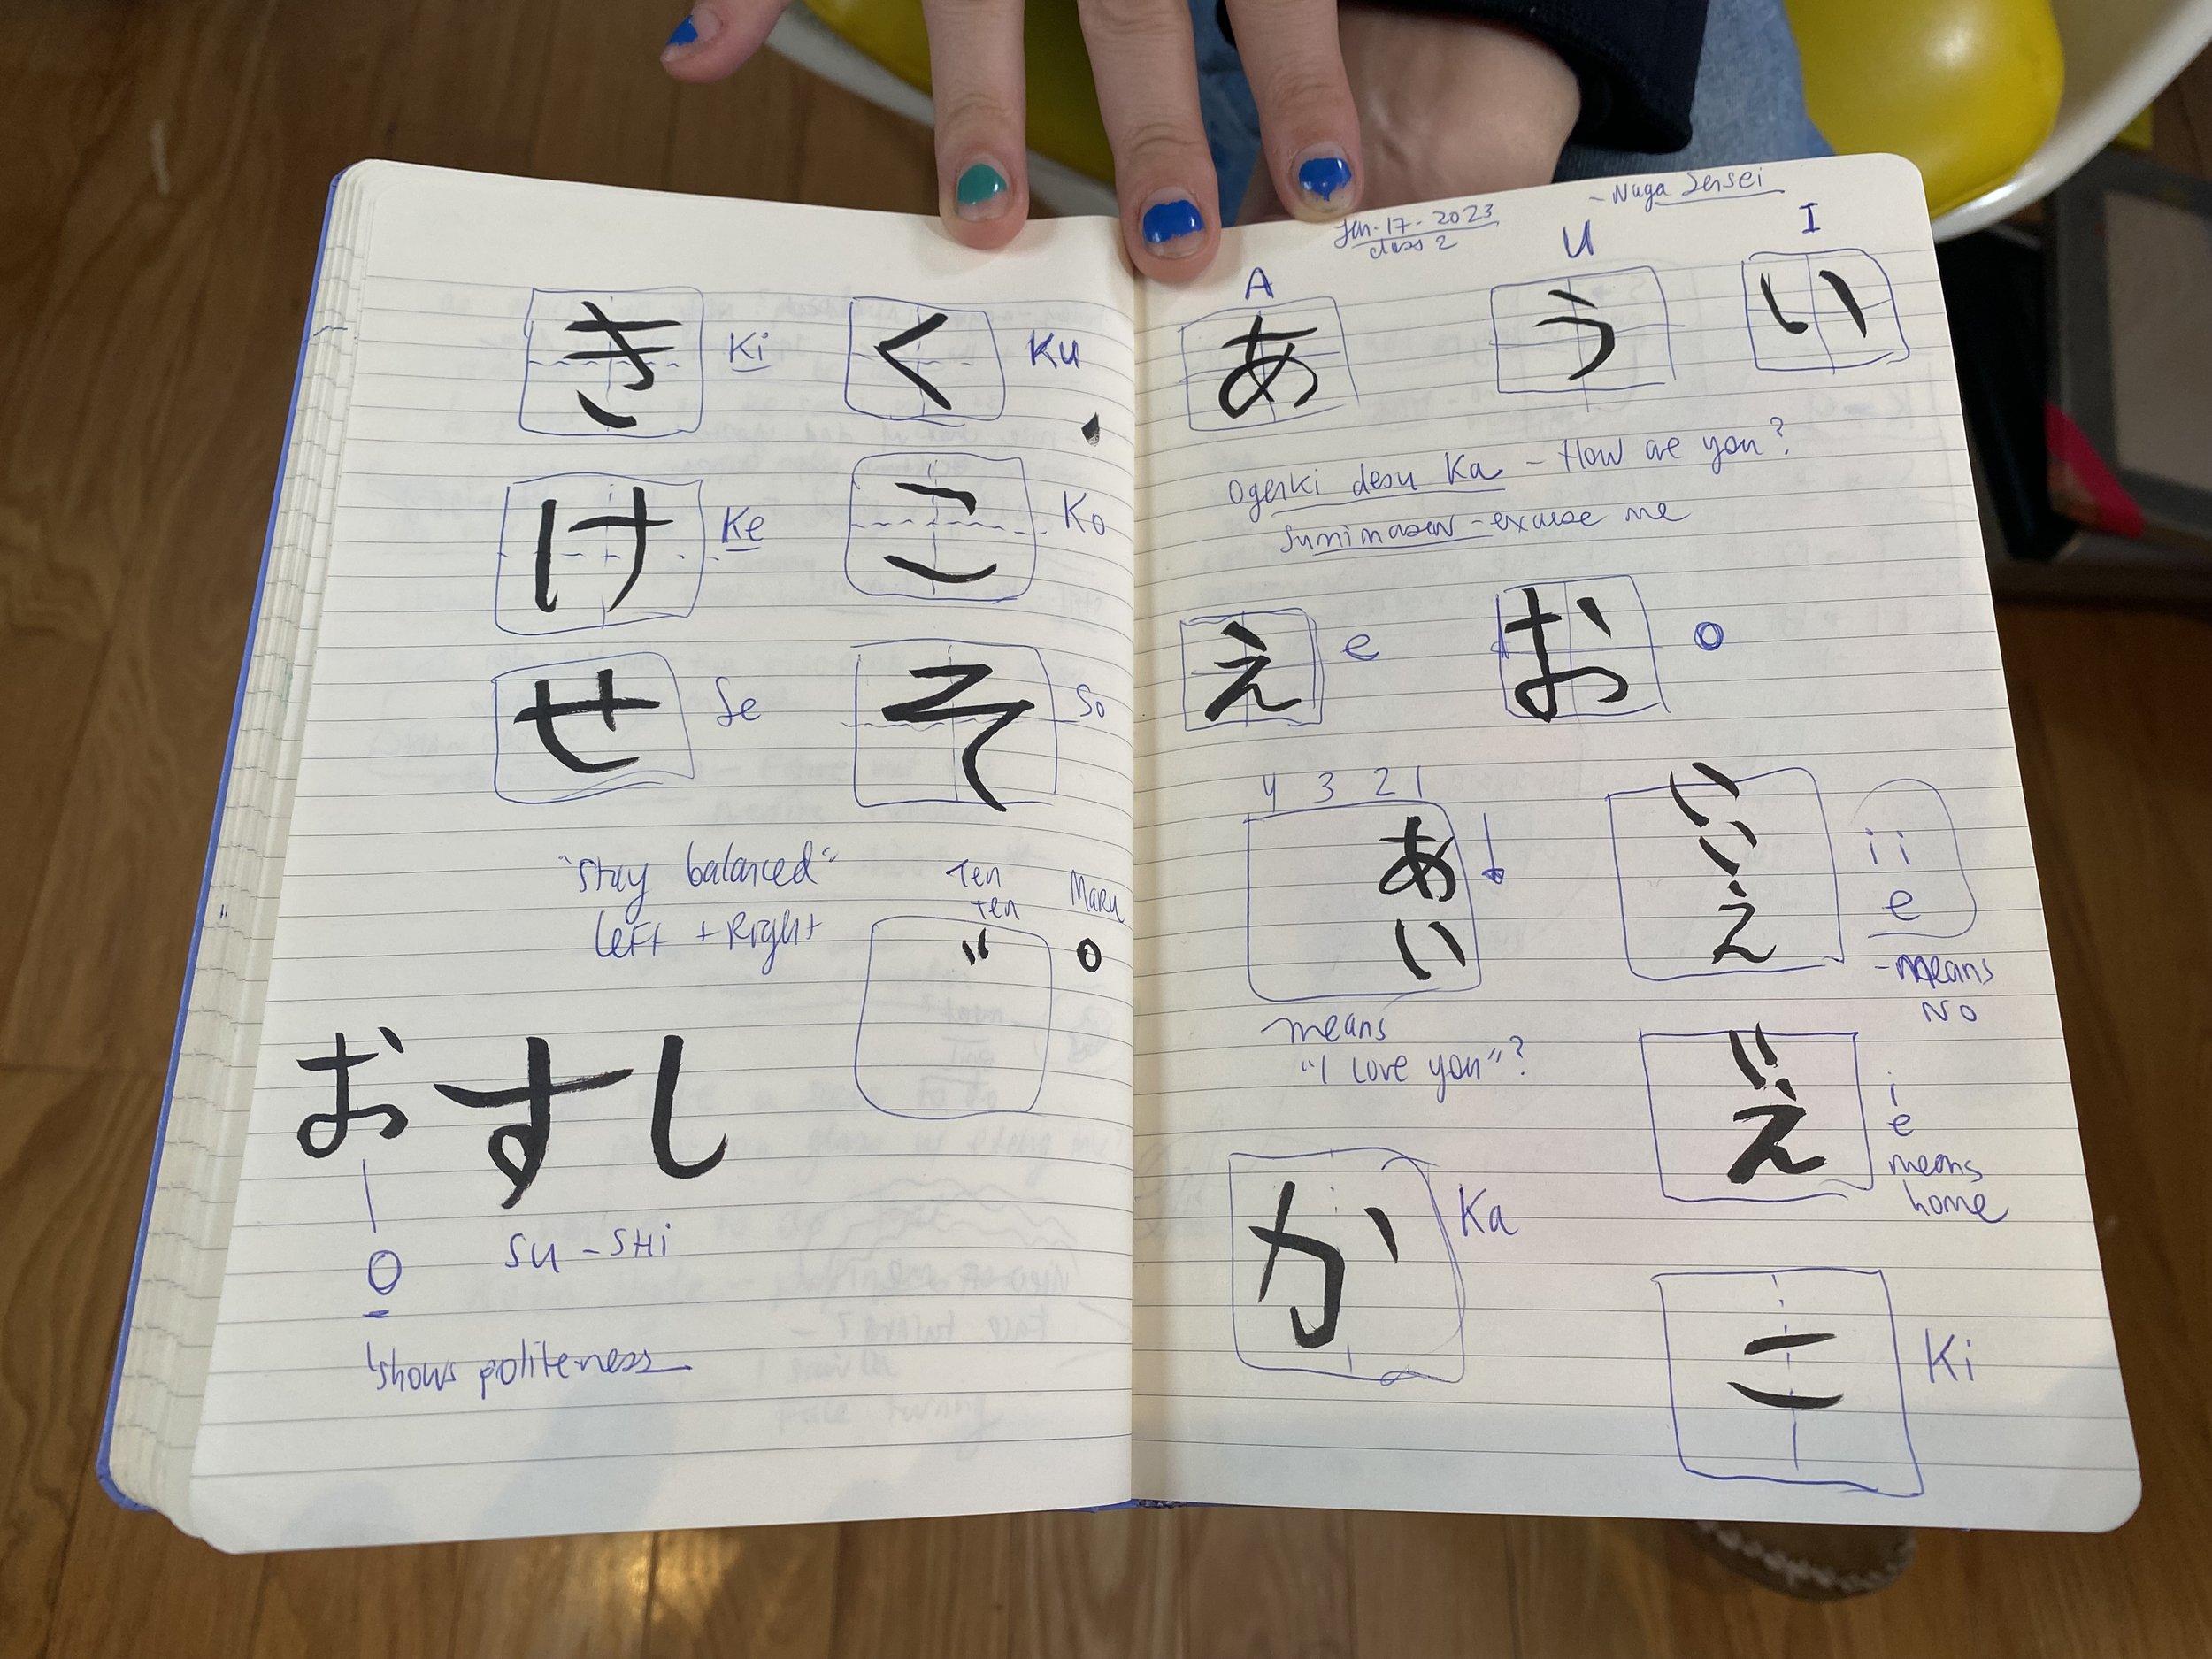 き Ki く Ku
け Ke こ Ko
せ Se そ So
"Stay balanced"
Left + Right
Ten
Ten
Maru
゛ ○
おすし
O
SU - SHi
shows politeness
Jan. 17. 2023
class 2
- Naga Sensei
A U I
あ う い
Ogenki desu Ka - How are you?
Sumimasen - excuse me
え e お o
4 3 2 1
あ
い
means
"I love you"?
い
い
え
i i
e
- means
No
い
え
i
e
means
home
か Ka
こ Ki